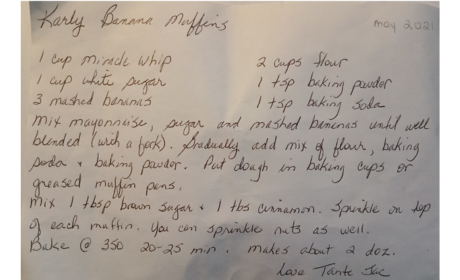 Karly Banana Muffins
may 2021
1 cup miracle whip 2 cups flour
1 cup white sugar 1 tsp baking powder
3 mashed bananas 1 tsp baking soda
mix mayonnaise, sugar and mashed bananas until well
blended (with a fork). Gradually add mix of flour, baking
soda + baking powder. Put dough in baking cups or
greased muffin pans.
mix 1 tbsp brown sugar + 1 tbs cinnamon. Sprinkle on top
of each muffin. You can sprinkle nuts as well.
Bake @ 350 20-25 min. makes about 2 doz.
Love Tante